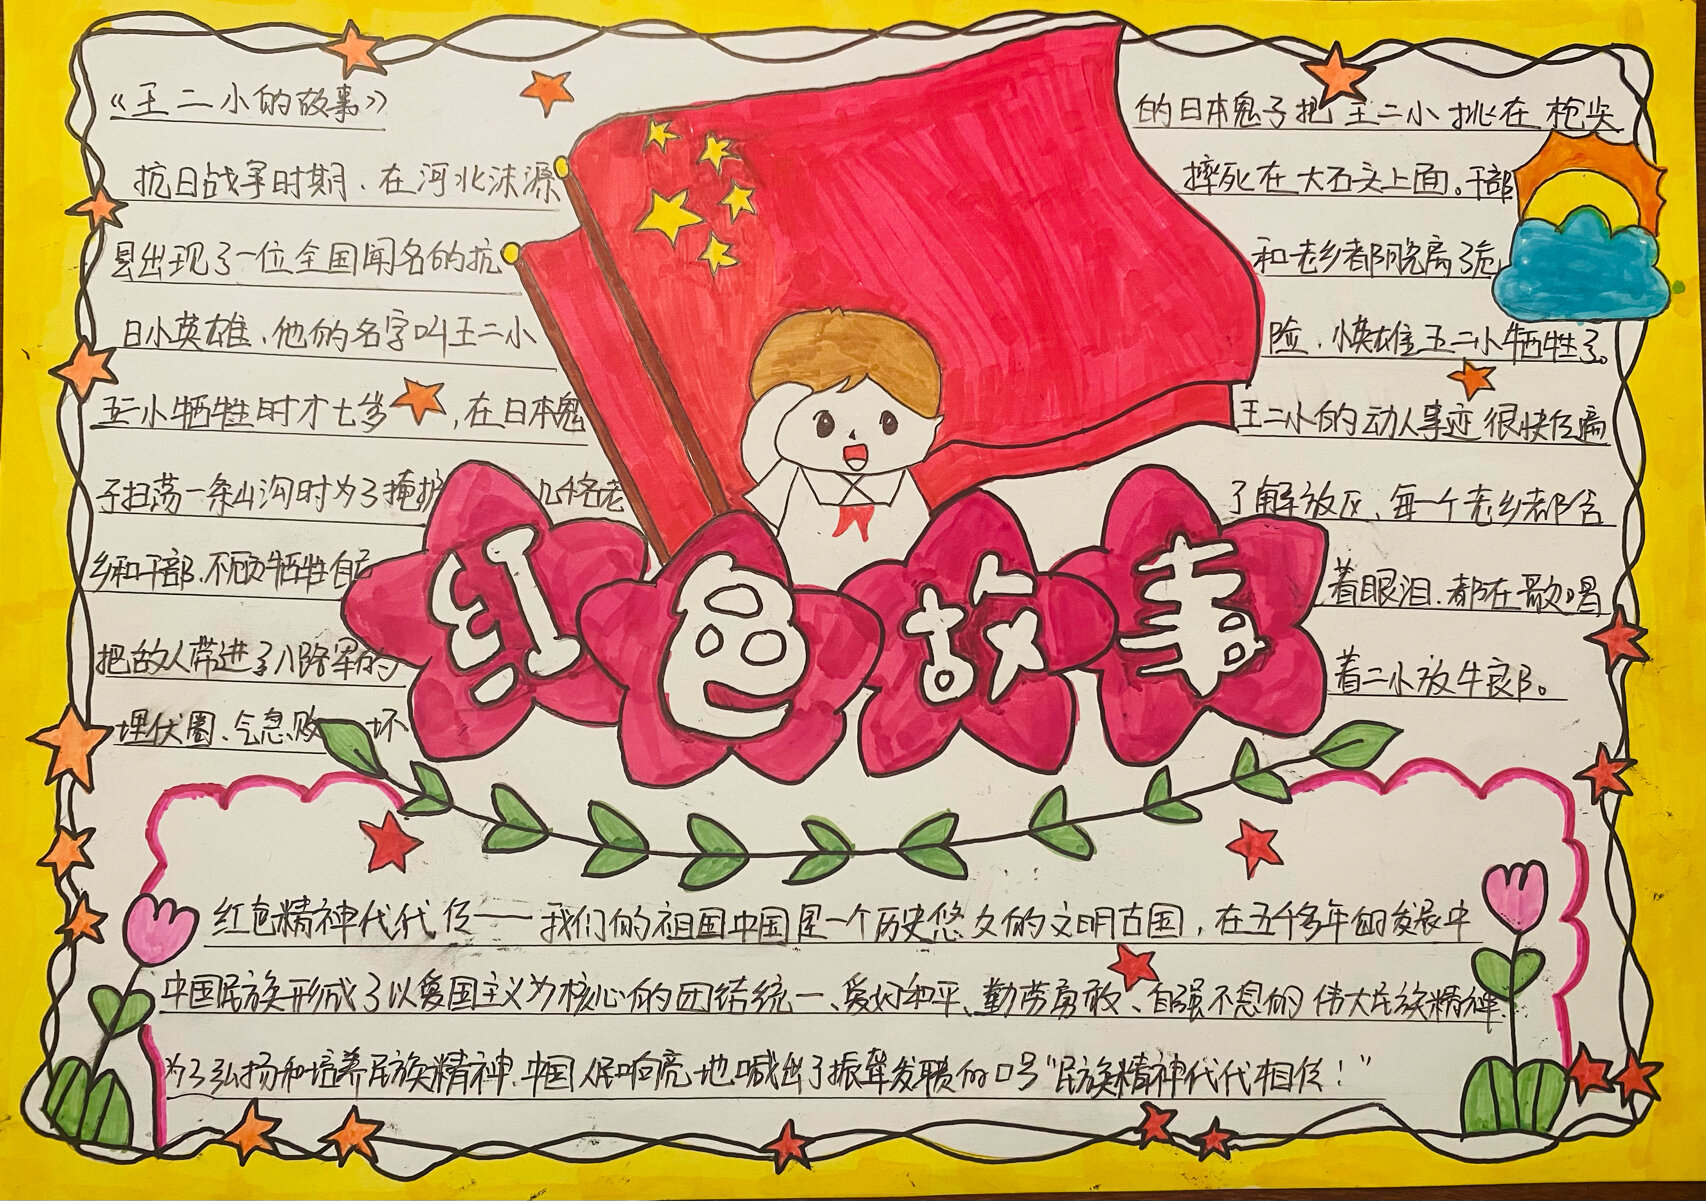 《王二小的故事》
抗日战争时期、在河北涞源
县出现了一位全国闻名的抗
日小英雄、他们的名字叫王二小
王二小牺牲时才七岁，在日本鬼
子扫荡一条山沟时为了掩护几十名老
乡和干部、不顾牺牲自己
把敌人带进了八路军的
埋伏圈、气急败坏
的日本鬼子把王二小挑在枪尖
摔死在大石头上面。干部
和老乡都脱离了危
险、小英雄王二小牺牲了。
王二小的动人事迹很快传遍
了解放区、每一个老乡都含
着眼泪、都在歌唱
着二小放牛郎。
红色故事
红色精神代代传——我们的祖国中国是一个历史悠久的文明古国，在五千多年的发展中
中国民族形成了以爱国主义为核心的团结统一、爱好和平、勤劳勇敢、自强不息的伟大民族精神
为了弘扬和培养民族精神、中国人民响亮地喊出了振聋发聩的口号“民族精神代代相传！”